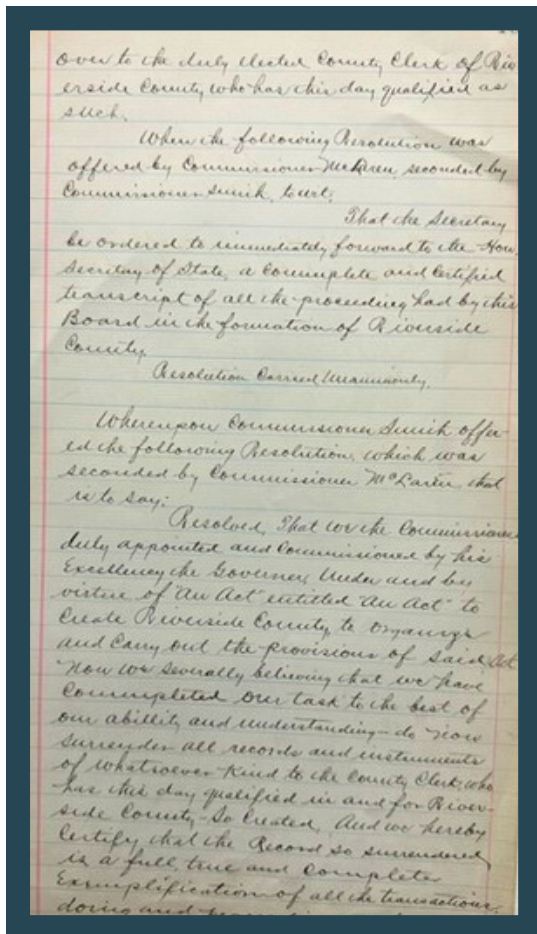 over to the duly elected County Clerk of Riv
erside County, who has this day qualified as
such.
When the following Resolution was
offered by Commissioner McLaren, seconded by
Commissioner Smith, to wit;
That the Secretary
be ordered to immediately forward to the Hon,
Secretary of State, a Complete and Certified
transcript of all the proceeding had by this
Board in the formation of Riverside
County.
Resolution Carried Unanimously.
Whereupon Commissioner Smith offer
ed the following Resolution, which was
seconded by Commissioner McLaren, that
is to say;
Resolved, That we the Commissioners
duly appointed and Commissioned by his
Excellency the Governor, Under and by
virtue of "An Act" entitled "An Act" to
Create Riverside County, to Organize
and Carry out the provisions of said Act
Now we severally believing that we have
Commpleted our task to the best of
our abillity and understanding - do now
surrender all records and instruments
of Whatsoever Kind to the County Clerk, who
has this day qualified in and for River-
side County - So Created, And we hereby
Certify that the Record so surrendered
is a full, true and Complete
Exemplification of all the transactions,
doing and